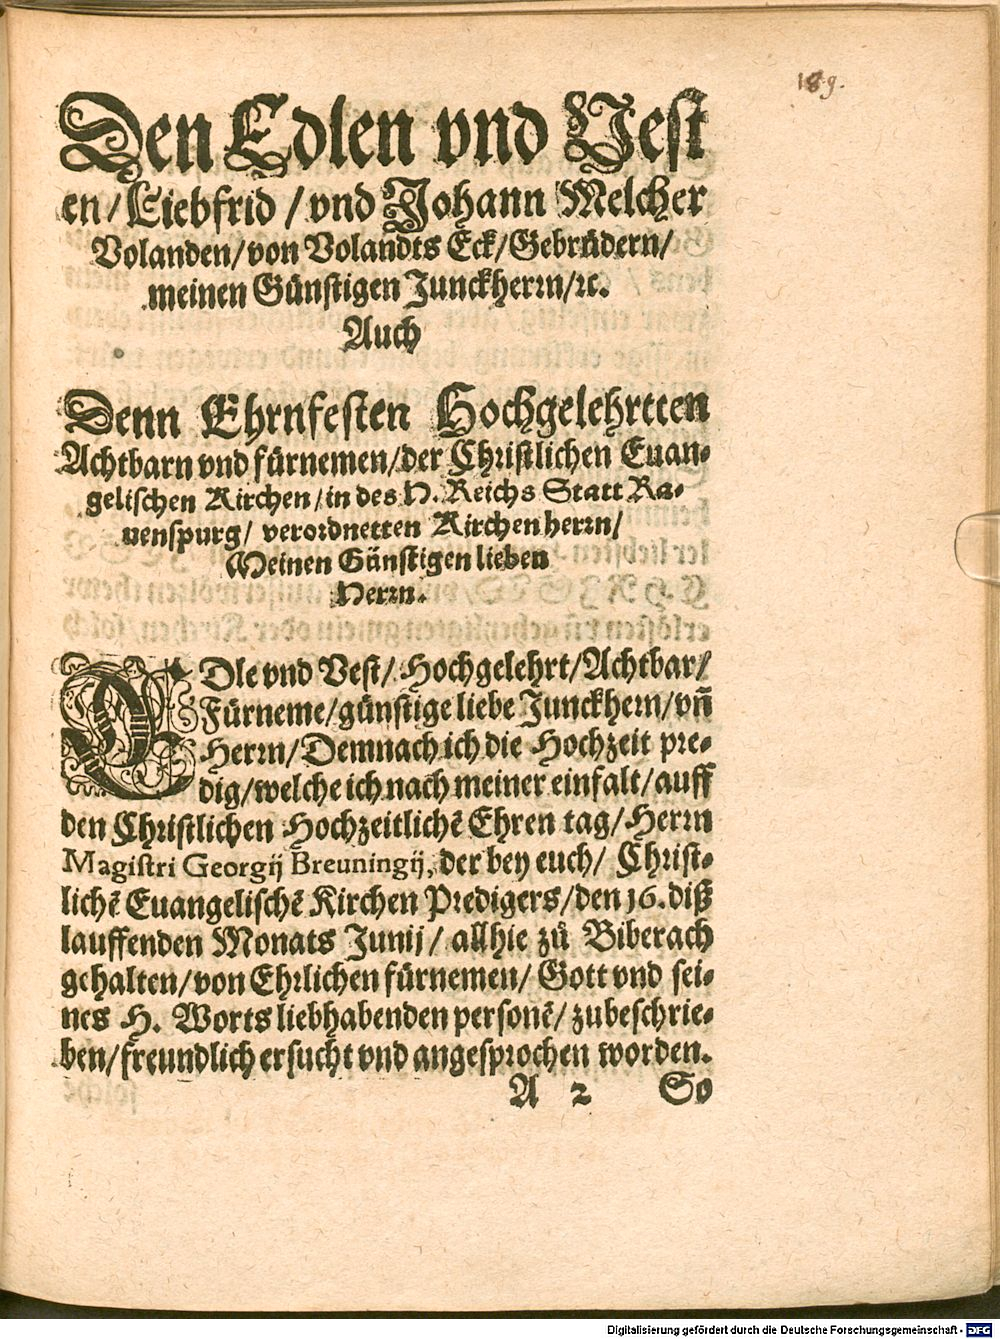 189.
Den Edlen vnd Vest
en/ Liebfrid / vnd Johann Melcher
Volanden/ von Volandts Eck/ Gebrüdern/
meinen Günstigen Junckherrn/ ꝛc.
Auch
Denn Ehrnfesten Hochgelehrtten
Achtbarn vnd fürnemen/ der Christlichen Euan-
gelischen Kirchen/ in des H. Reichs Statt Ra-
uenspurg/ verordnetten Kirchenherrn/
Meinen Günstigen lieben
Herrn.
EDle vnd Vest/ Hochgelehrt/ Achtbar/
Fürneme/ günstige liebe Junckhern/ vñ
Herrn/ Demnach ich die Hochzeit pre-
dig/ welche ich nach meiner einfalt/ auff
den Christlichen Hochzeitlichē Ehren tag/ Herrn
Magistri Georgij Breuningij, der bey euch/ Christ-
lichē Euangelischē Kirchen Predigers/ den 16. diß
lauffenden Monats Junij/ allhie zů Biberach
gehalten/ von Ehrlichen fürnemen/ Gott vnd sei-
nes H. Worts liebhabenden personē/ zubeschrie-
ben/ freundlich ersucht vnd angesprochen worden.
A 2 So
Digitalisierung gefördert durch die Deutsche Forschungsgemeinschaft - DFG